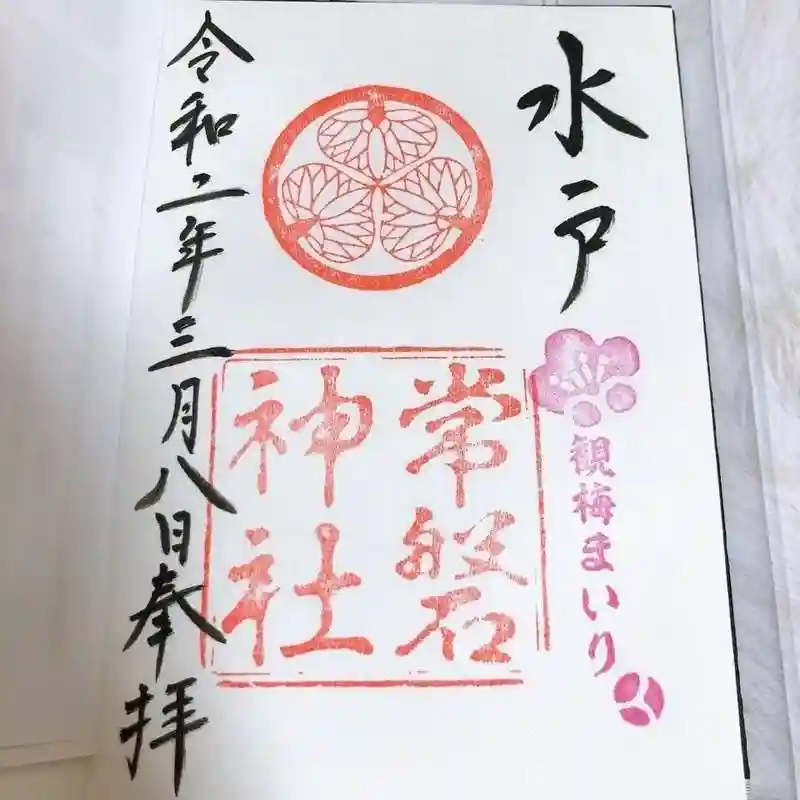 水戸
観梅まいり
常磐
神社
令和二年三月八日奉拝